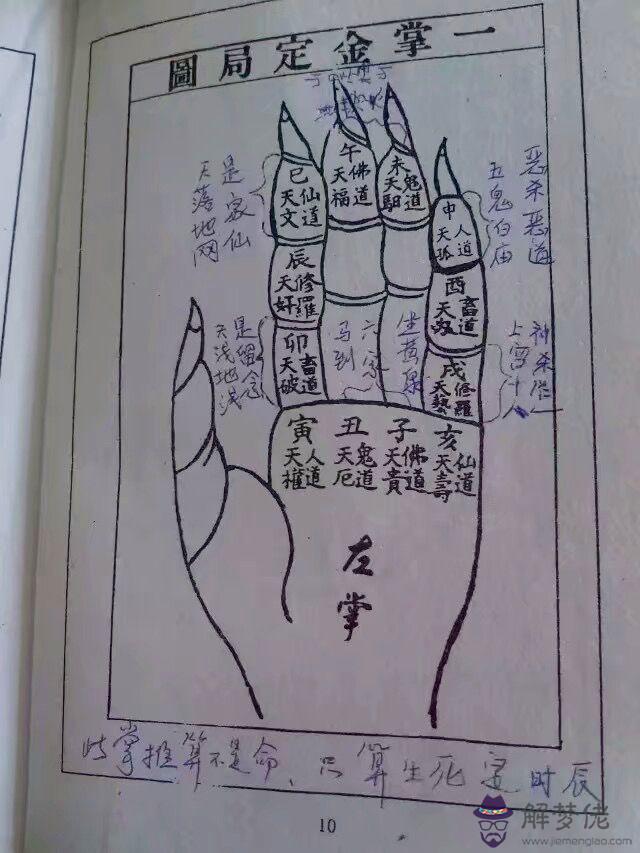 一掌金定局圖
午 佛道 天福
未 鬼道 天馹
巳 仙道 天文
申 人道 天孤
辰 修羅 天奸
酉 畜道
卯 畜道 天破
戌 修羅 天藝
寅 人道 天權
丑 鬼道 天厄
子 佛道 天貴
亥 仙道 天壽
左掌
是家仙
天落地网
恶杀恶道
五鬼伯庙
六家
马到
此掌推算不是命、只算生死定时辰
10
解梦佬
www.jiemenglao.com